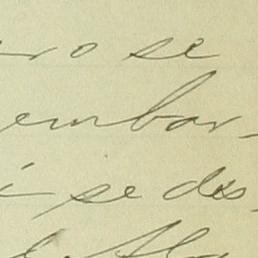 ro se
embar-
i se des-